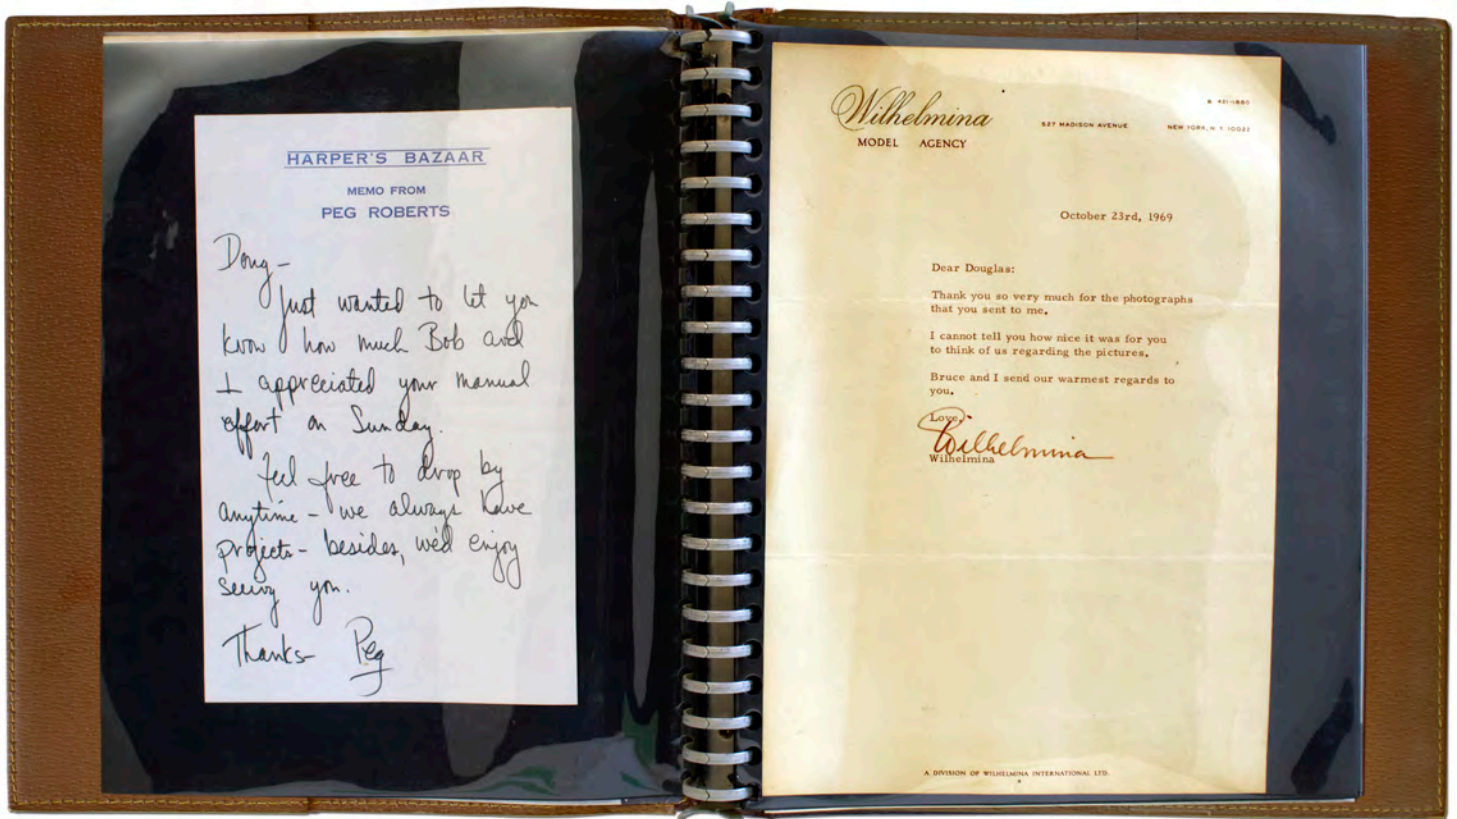 HARPER'S BAZAAR
MEMO FROM
PEG ROBERTS
Doug –
Just wanted to let you
know how much Bob and
I appreciated your manual
effort on Sunday.
Feel free to drop by
anytime – we always have
projects – besides, we'd enjoy
seeing you.
Thanks – Peg
Wilhelmina
MODEL AGENCY
527 MADISON AVENUE
NEW YORK, N. Y. 10022
October 23rd, 1969
Dear Douglas:
Thank you so very much for the photographs
that you sent to me.
I cannot tell you how nice it was for you
to think of us regarding the pictures.
Bruce and I send our warmest regards to
you.
Love,
Wilhelmina
Wilhelmina
A DIVISION OF WILHELMINA INTERNATIONAL LTD.